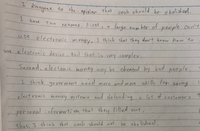 I disagree to the opinion that cash should be abolished.
I have two reasons. First, a large number of people don't
use electronic money. I think that they don't know how to
use electronic device and that is very complex.
Second, electronic money may be abused by bad people.
I think government need more and more skills for saving
electronic money systems and defending a lot of customer's
personal information that they filled out.
That's I think that cash should not be abolished.